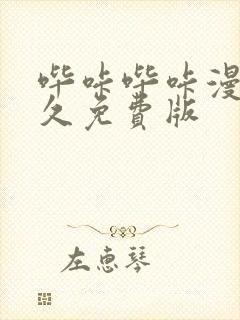 哔咔哔咔漫
久免费版
左惠琴